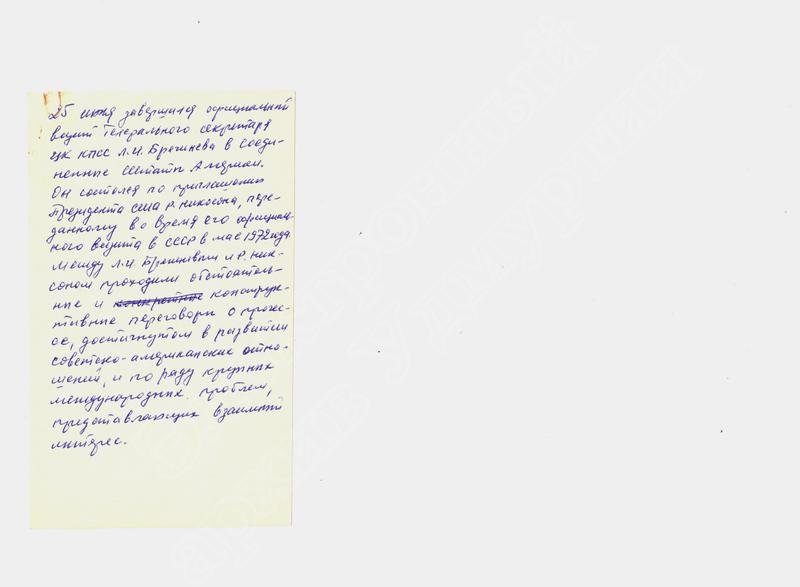 25 июня завершился официальный
визит Генерального секретаря
ЦК КПСС Л.И. Брежнева в Соеди-
ненные Штаты Америки.
Он состоялся по приглашению
Президента США Р. Никсона, пере-
данному во время его официаль-
ного визита в СССР в мае 1972 года.
Между Л.И. Брежневым и Р. Ник-
соном проходили обстоятель-
ные и конкретные конструк-
тивные переговоры о прогрес-
се, достигнутом в развитии
советско-американских отно-
шений, и по ряду крупных
международных проблем,
представляющих взаимный
интерес.